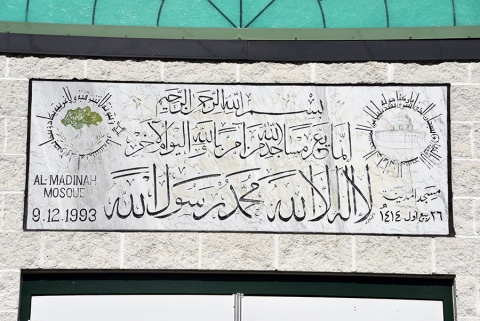 بسم الله الرحمن الرحيم
إنما يعمر مساجد الله من آمن بالله واليوم الآخر
لا إله إلا الله محمد رسول الله
AL-MADINAH
MOSQUE
9.12.1993
مسجد المدينة
٢٦ ربيع اول ١٤١٤